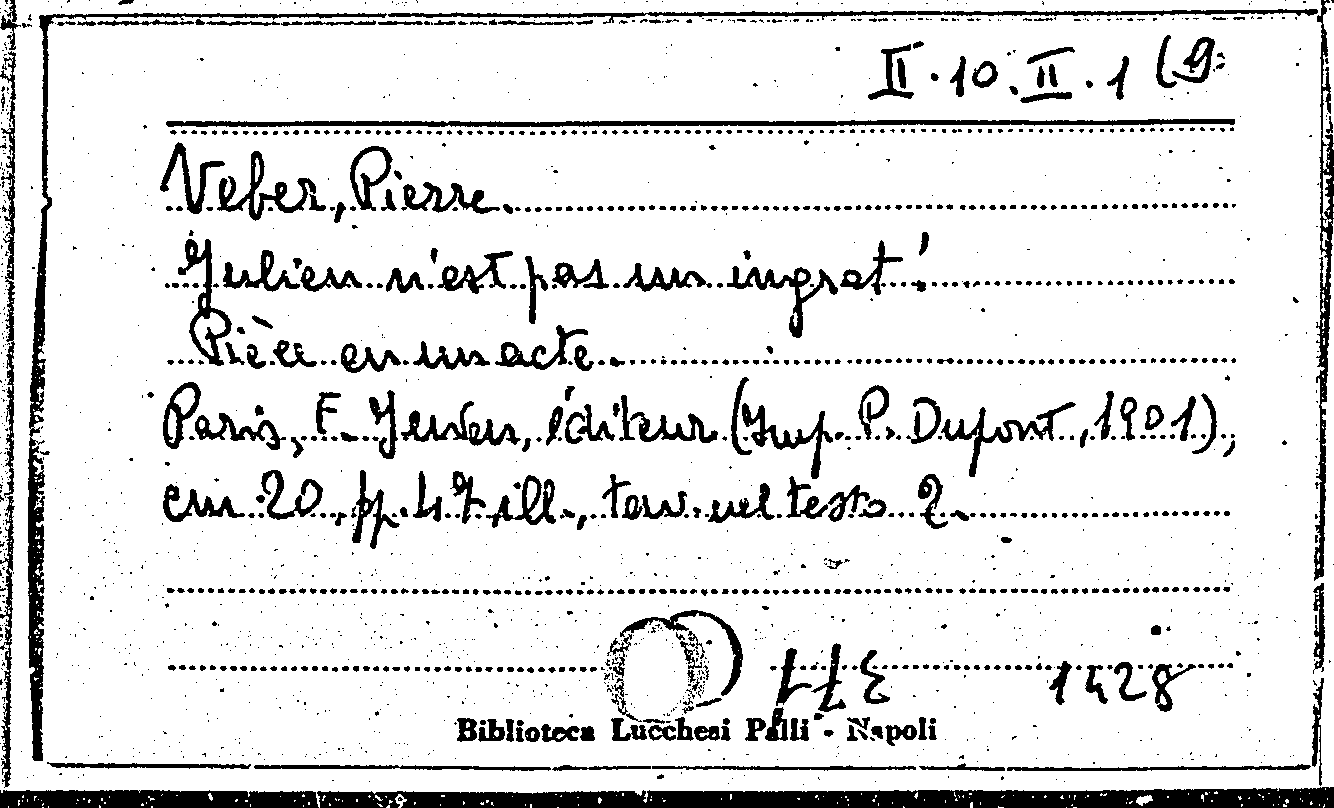 II. 10. II. 1 (9
Veber, Pierre.
Julien n'est pas un ingrat!
Pièce en un acte.
Paris, F. Juven, éditeur (Imp. P. Dupont, 1901),
cm 20, pp. 47, ill., tav. nel testo 2.
1428
Biblioteca Lucchesi Palli - Napoli